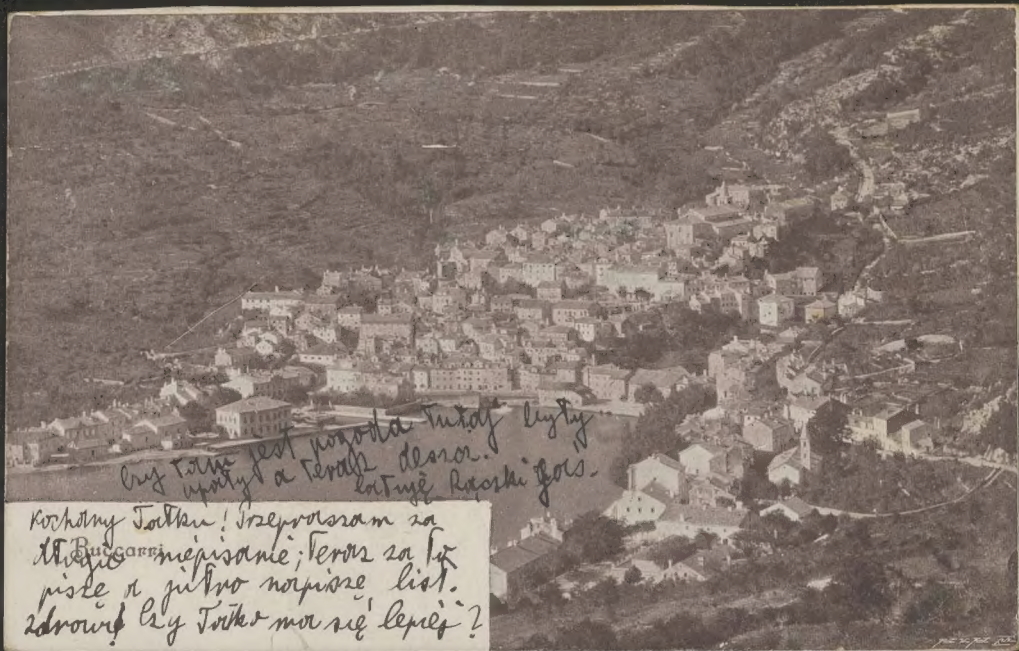 Czy tam jest pogoda Tutaj były
upały a teraz deszcz.
całuję Rączki Goś.
Kochany Tatku! Przepraszam za
długie niepisanie; Teraz za to
Buccari
piszę a jutro napiszę list.
Zdrowi Czy Tatko ma się lepiej?